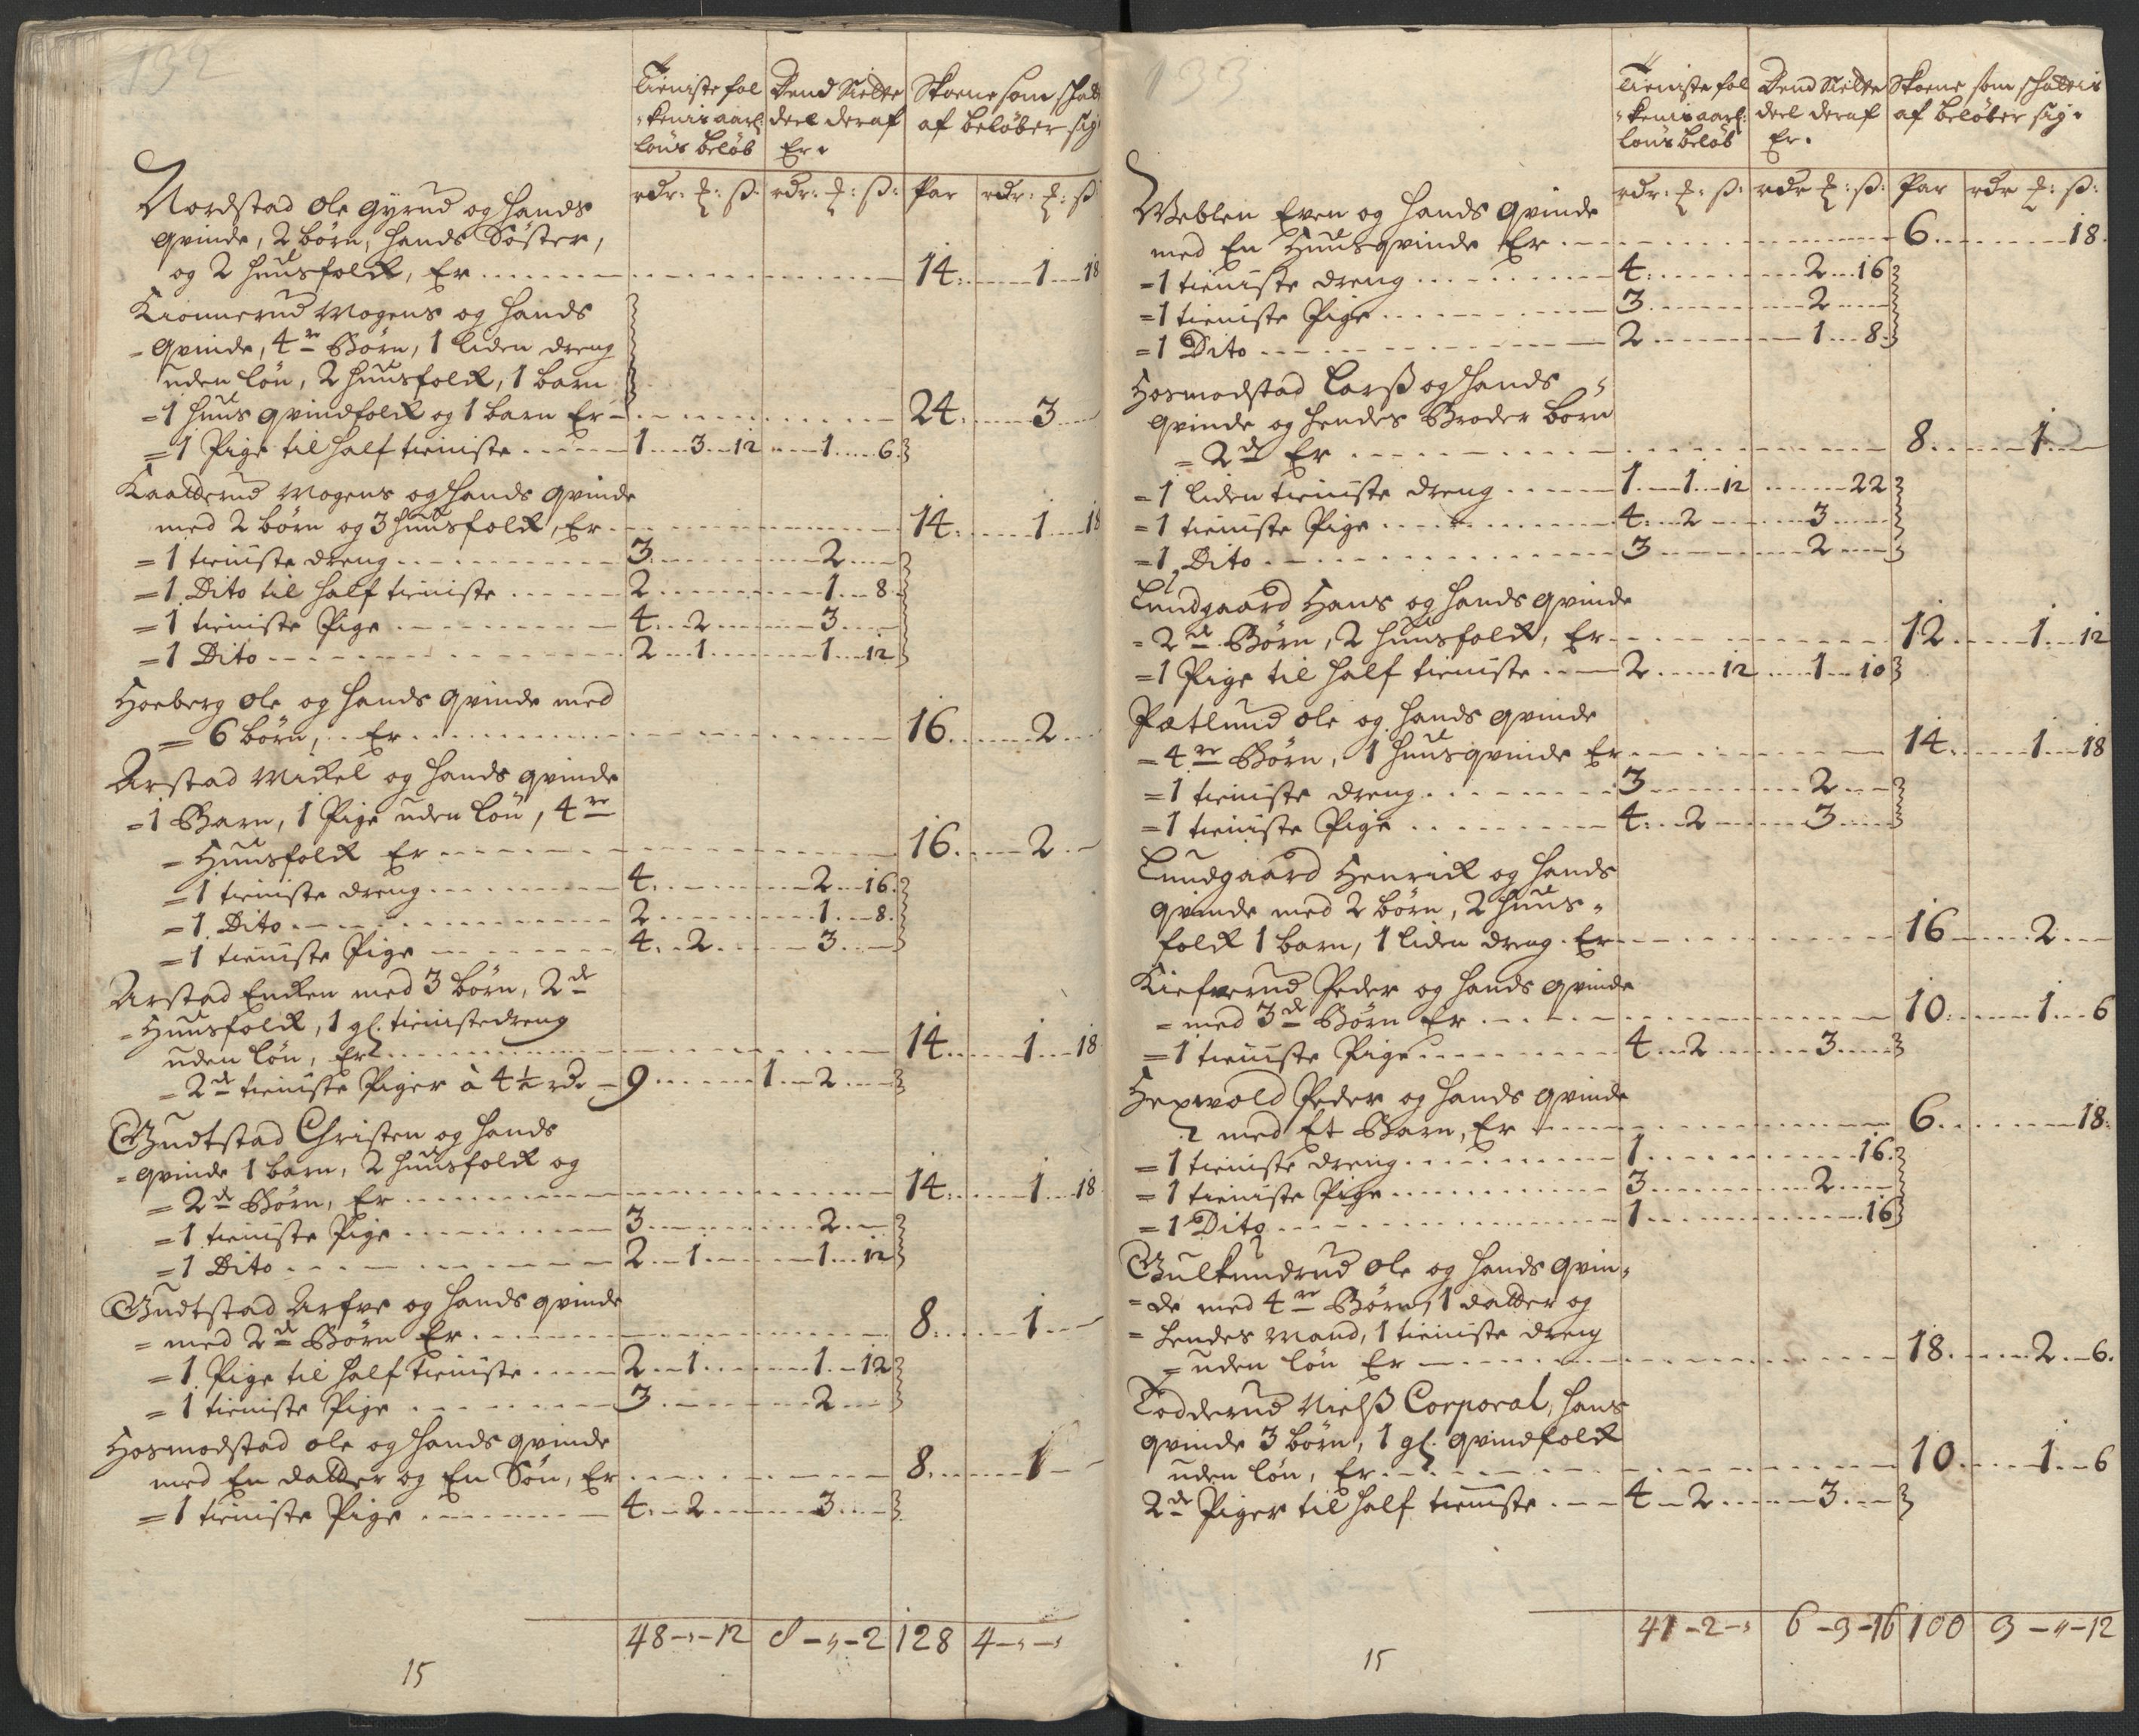 132
Tieniste fol Dend Siette Skoene som skatt
kenis aarl: deel deraf af beløber sig
løns beløb Er.
rdr: ʒ: ß: rdr: ʒ: ß: Par rdr: ʒ: ß
Nordstad Ole Gyrud og hands
qvinde, 2 børn, hands Søster,
og 2 huusfolck, Er 14 1 18
Kionnerud Mogens og hands
qvinde, 4re Børn, 1 liden dreng
uden løn, 2 huusfolck, 1 barn
=1 huus qvindfolck og 1 barn Er 24 3
=1 Pige til half tieniste 1 3 12 1 6
Kaatterud Mogens og hands qvinde
med 2 børn og 3 huusfolck, Er 14 1 18
=1 tieniste dreng 3 2
=1 Dito til half tieniste 2 1 8
=1 tieniste Pige 4 2 3
=1 Dito 2 1 1 12
Hoeberg Ole og hands qvinde med
= 6 børn, Er 16 2
Arstad Mickel og hands qvinde
=1 Barn, 1 Pige uden løn, 4re
= Huusfolck Er 16 2
=1 tieniste dreng 4 2 16
=1 Dito 2 1 8
=1 tieniste Pige 4 2 3
Arstad Encken med 3 børn, 2de
= Huusfolck, 1 gl. tienistedreng
uden løn, Er 14 1 18
= 2de tieniste Piger à 4½ rdr 9 1 2
Gudtstad Christen og hands
= qvinde 1 barn, 2 huusfolck og
= 2de Børn, Er 14 1 18
=1 tieniste Pige 3 2
=1 Dito 2 1 1 12
Gudtstad Arfve og hands qvinde
= med 2de Børn Er 8 1
=1 Pige til half tieniste 2 1 1 12
=1 tieniste Pige 3 2
Hosmodstad Ole og hands qvinde
med En datter og En Søn, Er 8 1
=1 tieniste Pige 4 2 3
48 - „ - 12 8 - „ - 2 128 4 - „ - „
15
133
Tieniste fol Dend Siette Skoene som skattis
kenis aarl: deel deraf af beløber sig.
løns beløb Er.
rdr: ʒ: ß: rdr ʒ: ß: Par rdr ʒ: ß:
Weblen Even og hands qvinde
med En Huusqvinde Er 6 18
=1 tieniste dreng 4 2 16
=1 tieniste Pige 3 2
=1 Dito 2 1 8
Hosmodstad Larß og hands
qvinde og hendes Broder børn
= 2de Er 8 1
=1 liden tieniste dreng 1 1 12 22
=1 tieniste Pige 4 2 3
=1 Dito 3 2
Lundgaard Hans og hands qvinde
= 2de Børn, 2 huusfolck, Er 12 1 12
=1 Pige til half tieniste 2 12 1 10
Pætlund Ole og hands qvinde
=4re Børn, 1 huusqvinde Er 14 1 18
=1 tieniste dreng 3 2
=1 tieniste Pige 4 2 3
Lundgaard Henrick og hands
qvinde med 2 børn, 2 huus=
folck 1 barn, 1 liden dreng. Er 16 2
Kiefverud Peder og hands qvinde
= med 3de Børn Er 10 1 6
=1 tieniste Pige 4 2 3
Hexwold Peder og hands qvinde
med Et Barn, Er 6 18
=1 tieniste dreng 1 16
=1 tieniste Pige 3 2
=1 Dito 1 16
Gulkundrud Ole og hands qvin=
=de med 4re Børn, 1 datter og
= hendes Mand, 1 tieniste dreng
= uden løn Er 18 2 6
Todderud Nielß Corporal, hans
qvinde 3 børn, 1 gl. qvindfolck
uden løn, Er 10 1 6
2de Piger til half tieniste 4 2 3
41 - 2 - „ 6 - 3 - 16 100 3 - „ - 12
15